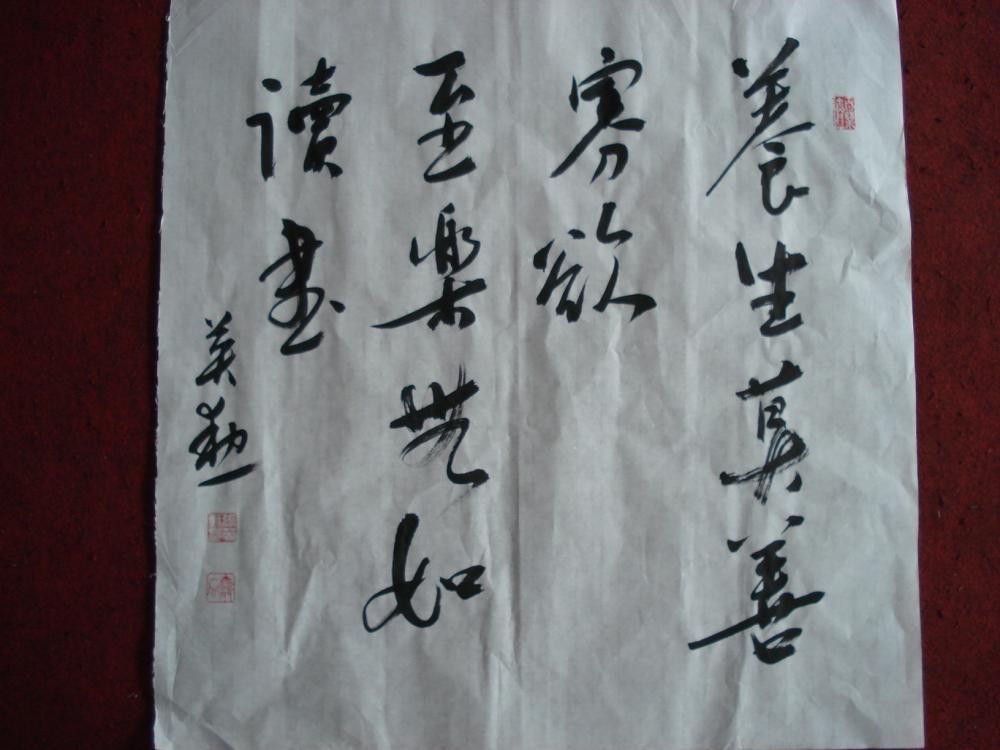 養生莫善
寡欲
至樂無如
讀書
英勃